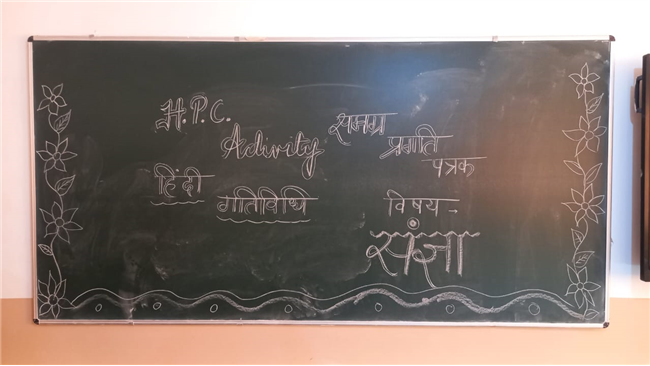 H.P.C.
Activity
समग्र
प्रगति
पत्रक
हिंदी
गतिविधि
विषय -
संज्ञा